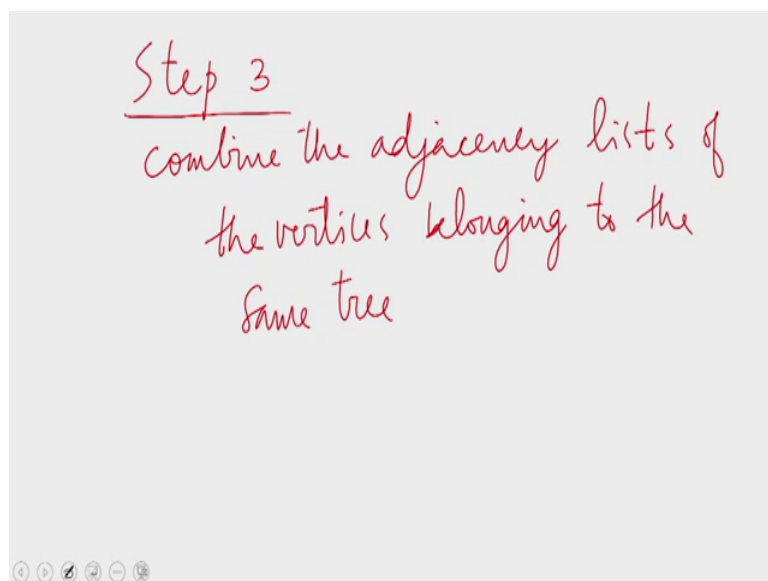 Step 3
combine the adjacency lists of
the vertices belonging to the
same tree